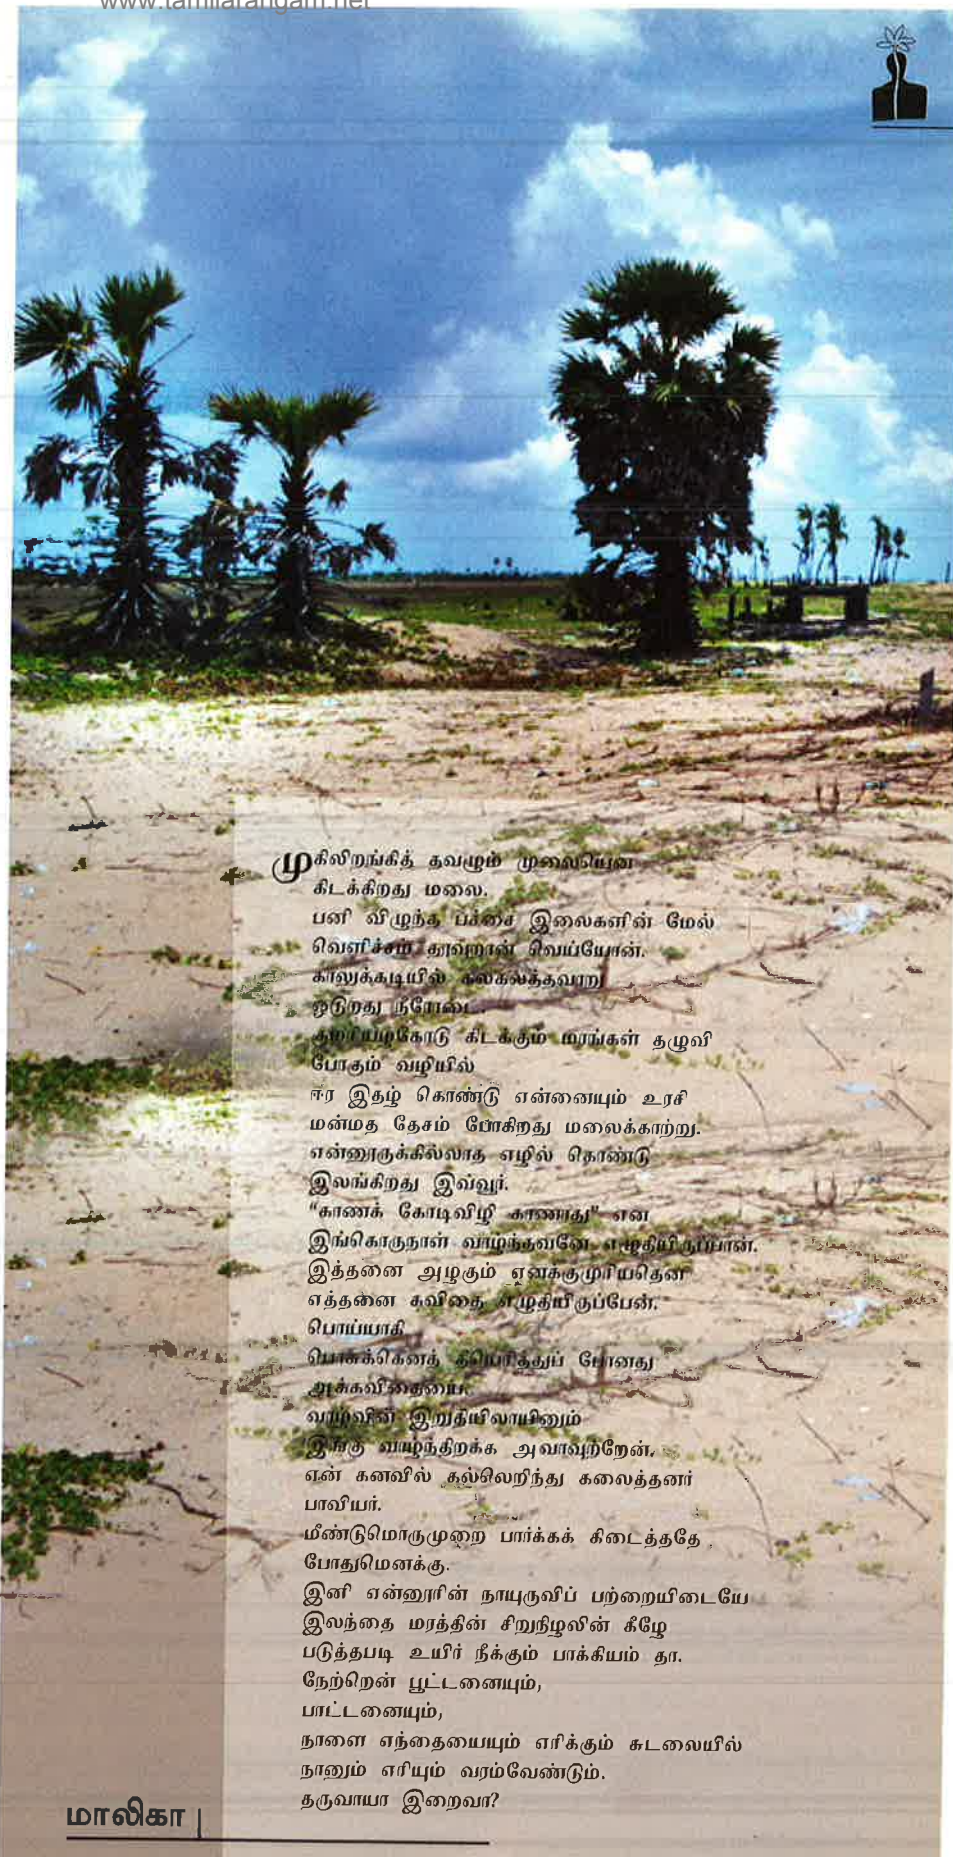 www.tamilarangam.net
முகிலிறங்கித் தவழும் முலையென
கிடக்கிறது மலை.
பனி விழுந்த பச்சை இலைகளின் மேல்
வெளிச்சம் தூவுறான் வெய்யோன்.
காலுக்கடியில் கலகலத்தவாறு
ஓடுறது நீரோடை.
குமரியழகோடு கிடக்கும் மரங்கள் தழுவி
போகும் வழியில்
ஈர இதழ் கொண்டு என்னையும் உரசி
மன்மத தேசம் போகிறது மலைக்காற்று.
என்னூருக்கில்லாத எழில் கொண்டு
இலங்கிறது இவ்வூர்.
"காணக் கோடிவிழி காணாது" என
இங்கொருநாள் வாழ்ந்தவனே எழுதியிருப்பான்.
இத்தனை அழகும் எனக்குமுரியதென
எத்தனை கவிதை எழுதியிருப்பேன்.
பொய்யாகி
பொசுக்கெனத் தீயெரித்துப் போனது
அக்கவிதையை.
வாழ்வின் இறுதியிலாயினும்
இங்கு வாழ்ந்திறக்க அவாவுற்றேன்.
என் கனவில் கல்லெறிந்து கலைத்தனர்
பாவியர்.
மீண்டுமொருமுறை பார்க்கக் கிடைத்ததே
போதுமெனக்கு.
இனி என்னூரின் நாயுருவிப் பற்றையிடையே
இலந்தை மரத்தின் சிறுநிழலின் கீழே
படுத்தபடி உயிர் நீக்கும் பாக்கியம் தா.
நேற்றென் பூட்டனையும்,
பாட்டனையும்,
நாளை எந்தையையும் எரிக்கும் சுடலையில்
நானும் எரியும் வரம்வேண்டும்.
தருவாயா இறைவா?
மாலிகா